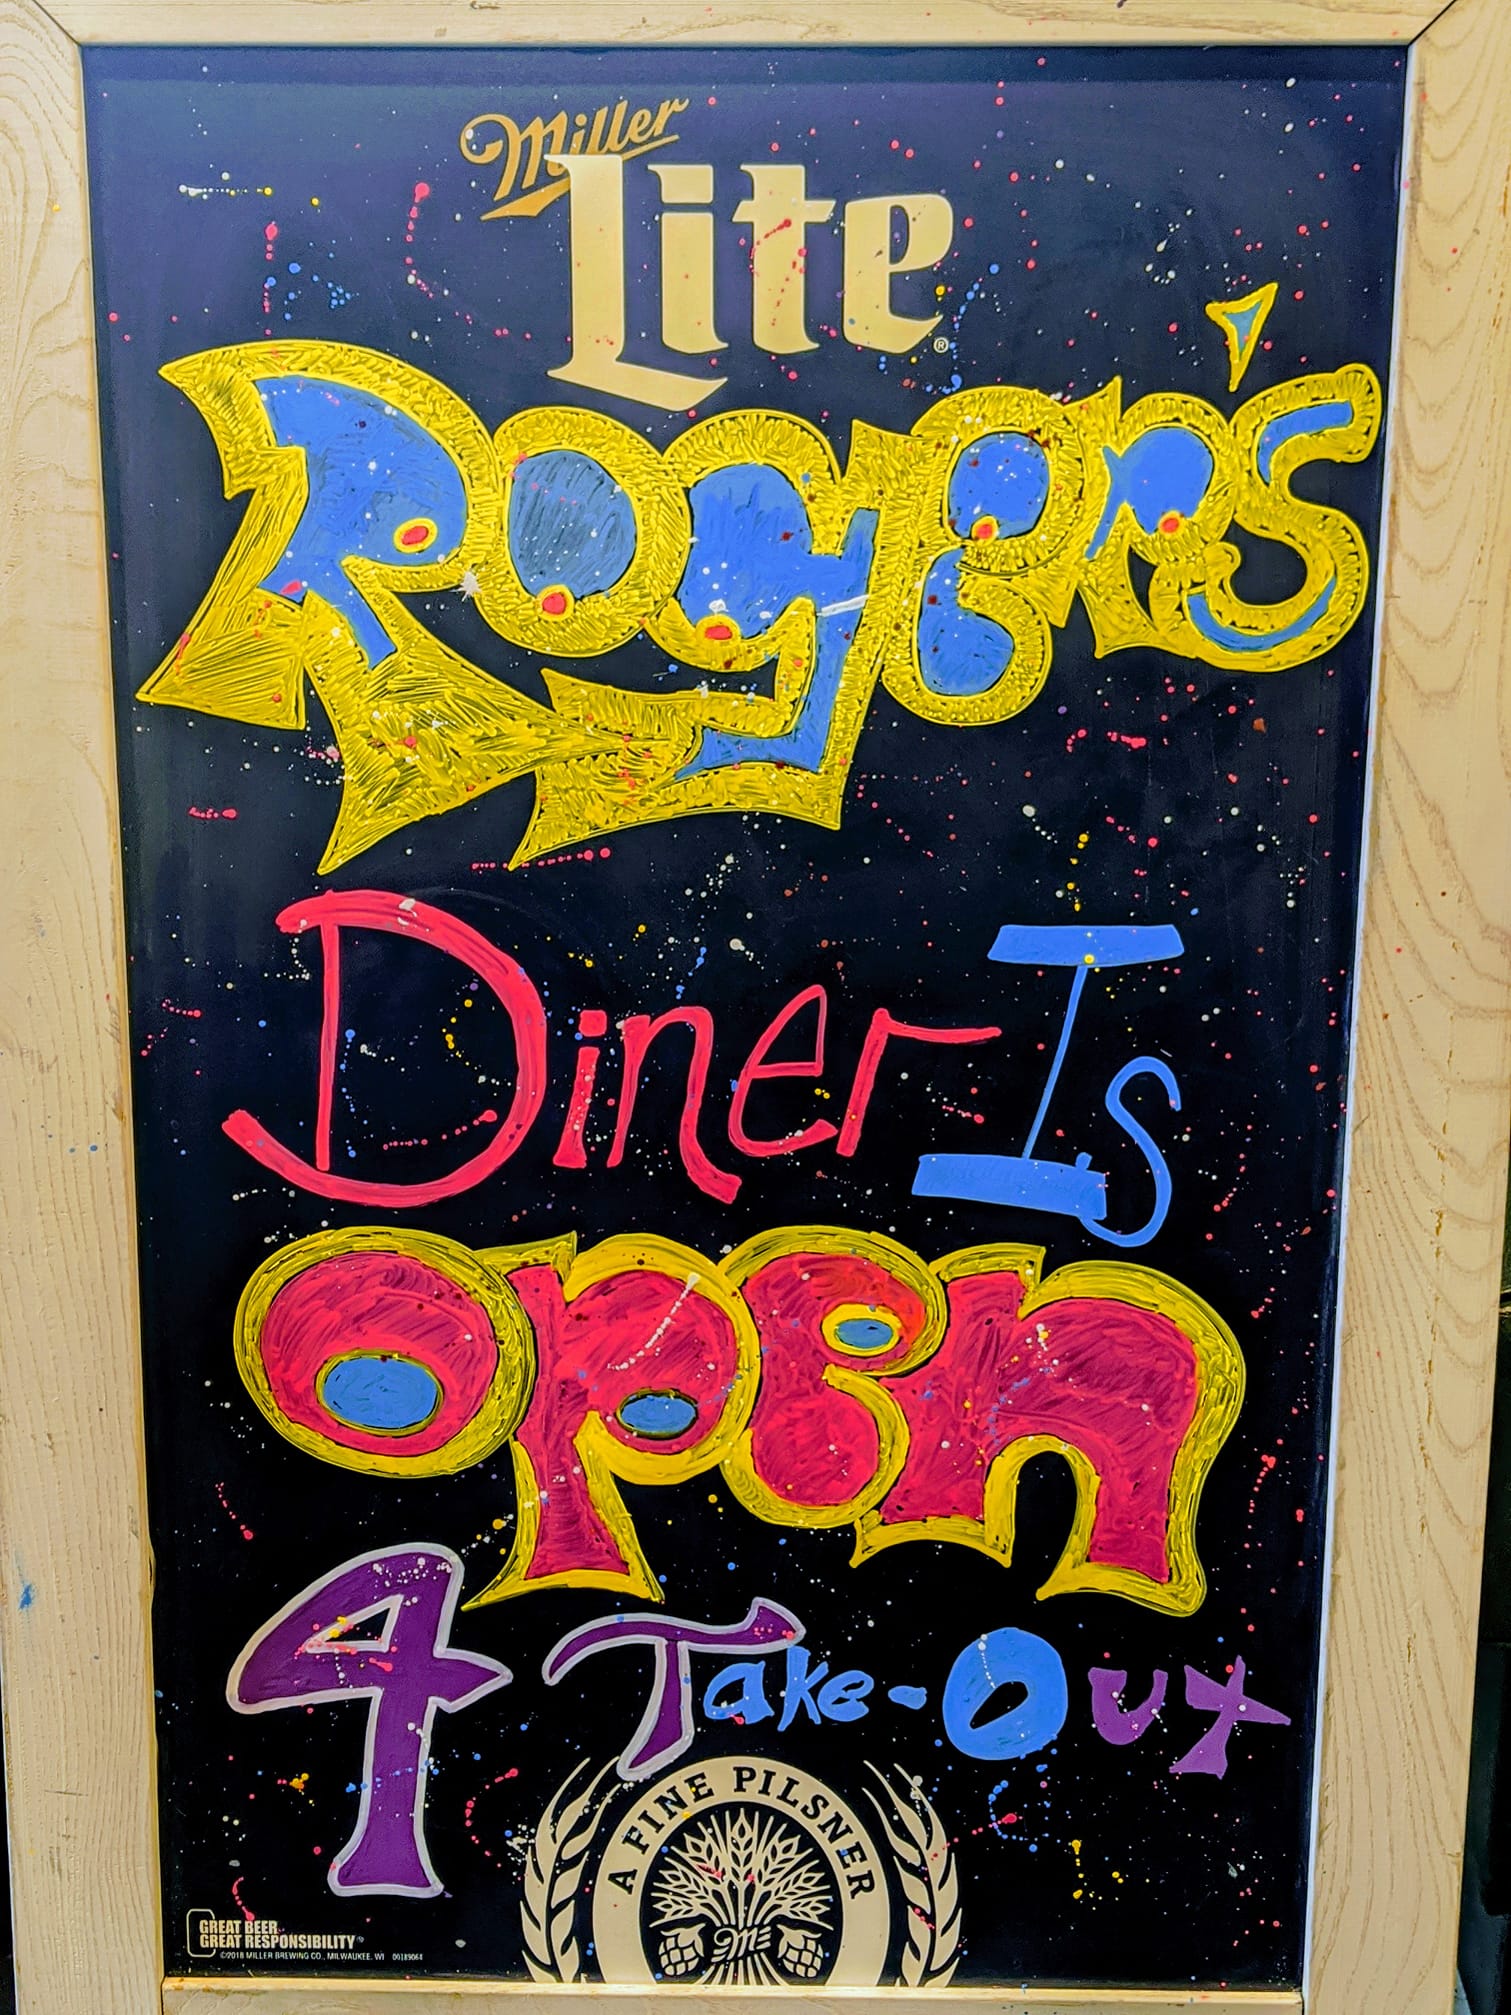 Miller
Lite®
Roger's
Diner Is
Open
4 Take-Out
A FINE PILSNER
GREAT BEER
GREAT RESPONSIBILITY®
©2018 MILLER BREWING CO., MILWAUKEE, WI